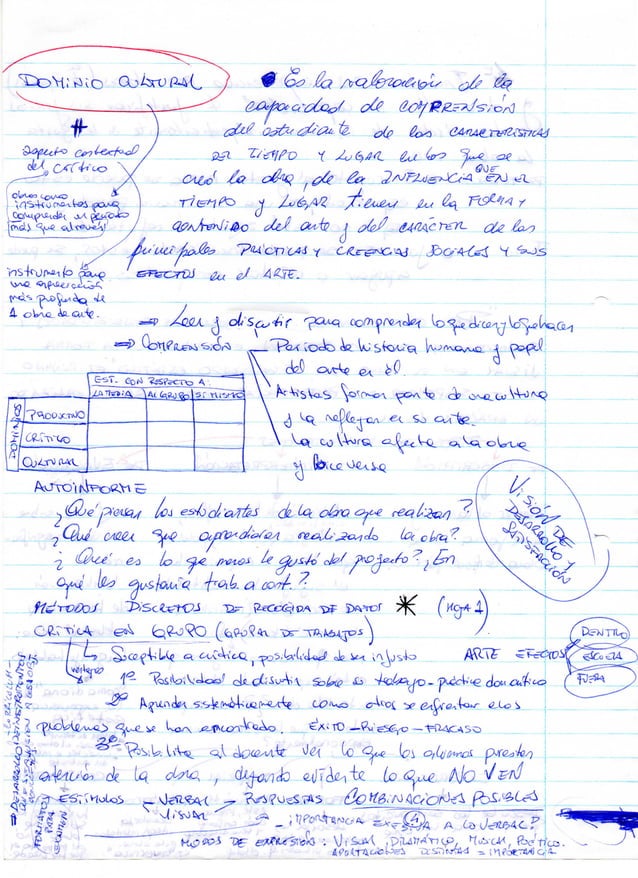 DOMINIO CULTURAL
Es la valoración de la
capacidad de COMPRENSIÓN
del estudiante de las CARACTERÍSTICAS
DEL TIEMPO Y LUGAR en los que se
creó la obra, de la INFLUENCIA QUE EN EL
TIEMPO y LUGAR tienen en la FORMA y
contenido del arte y del CARÁCTER de las
principales PRÁCTICAS Y CREENCIAS SOCIALES Y SUS
EFECTOS en el ARTE.
#
aspecto contextual
del CRÍTICO
obras como
instrumentos para
comprender su período
más que al revés!
instrumento para
una apreciación
más profunda de
1 obra de arte.
⇒ Leer y discutir para comprender lo que dicen y lo que hacen
⇒ COMPRENSIÓN - Período de historia humana y papel
del arte en él.
Artistas forman parte de una cultura
y la reflejan en su arte.
La cultura afecta a la obra
y viceversa
EST. CON RESPECTO A:
LA MATERIA AL GRUPO SÍ MISMO
DOMINIOS
PRODUCTIVO
CRÍTICO
CULTURAL
AUTOINFORME
¿Qué piensan los estudiantes de la obra que realizan?
¿Qué creen que aprendieron realizando la obra?
¿Qué es lo que menos le gustó del proyecto? ¿En
qué les gustaría trab. a cont.?
VISIÓN DE
DESARROLLO Y
SATISFACCIÓN
MÉTODOS DISCRETOS DE RECOGIDA DE DATOS * (HOJA 1)
CRÍTICA EN GRUPO (GRUPAL DE TRABAJOS)
Susceptible a crítica, posibilidad de ser injusto
ARTE EFECTOS
DENTRO
ESCUELA
FUERA
ventajas
1º Posibilidad de discutir sobre su trabajo - práctica
2º Aprender sistemáticamente como otros se enfrentan a los
problemas que se han encontrado. ÉXITO - RIESGO - FRACASO
3º Posibilita al docente ver lo que los alumnos prestan
atención de la obra, dejando evidente lo que NO VEN
ESTÍMULOS - VERBAL
VISUAL
RESPUESTAS COMBINACIONES POSIBLES
- IMPORTANCIA A LO VERBAL?
MODOS DE EXPRESIÓN: VISUAL, DRAMÁTICO, MUSICAL, POÉTICO.
APORTACIONES DISTINTAS = IMPORTANCIA